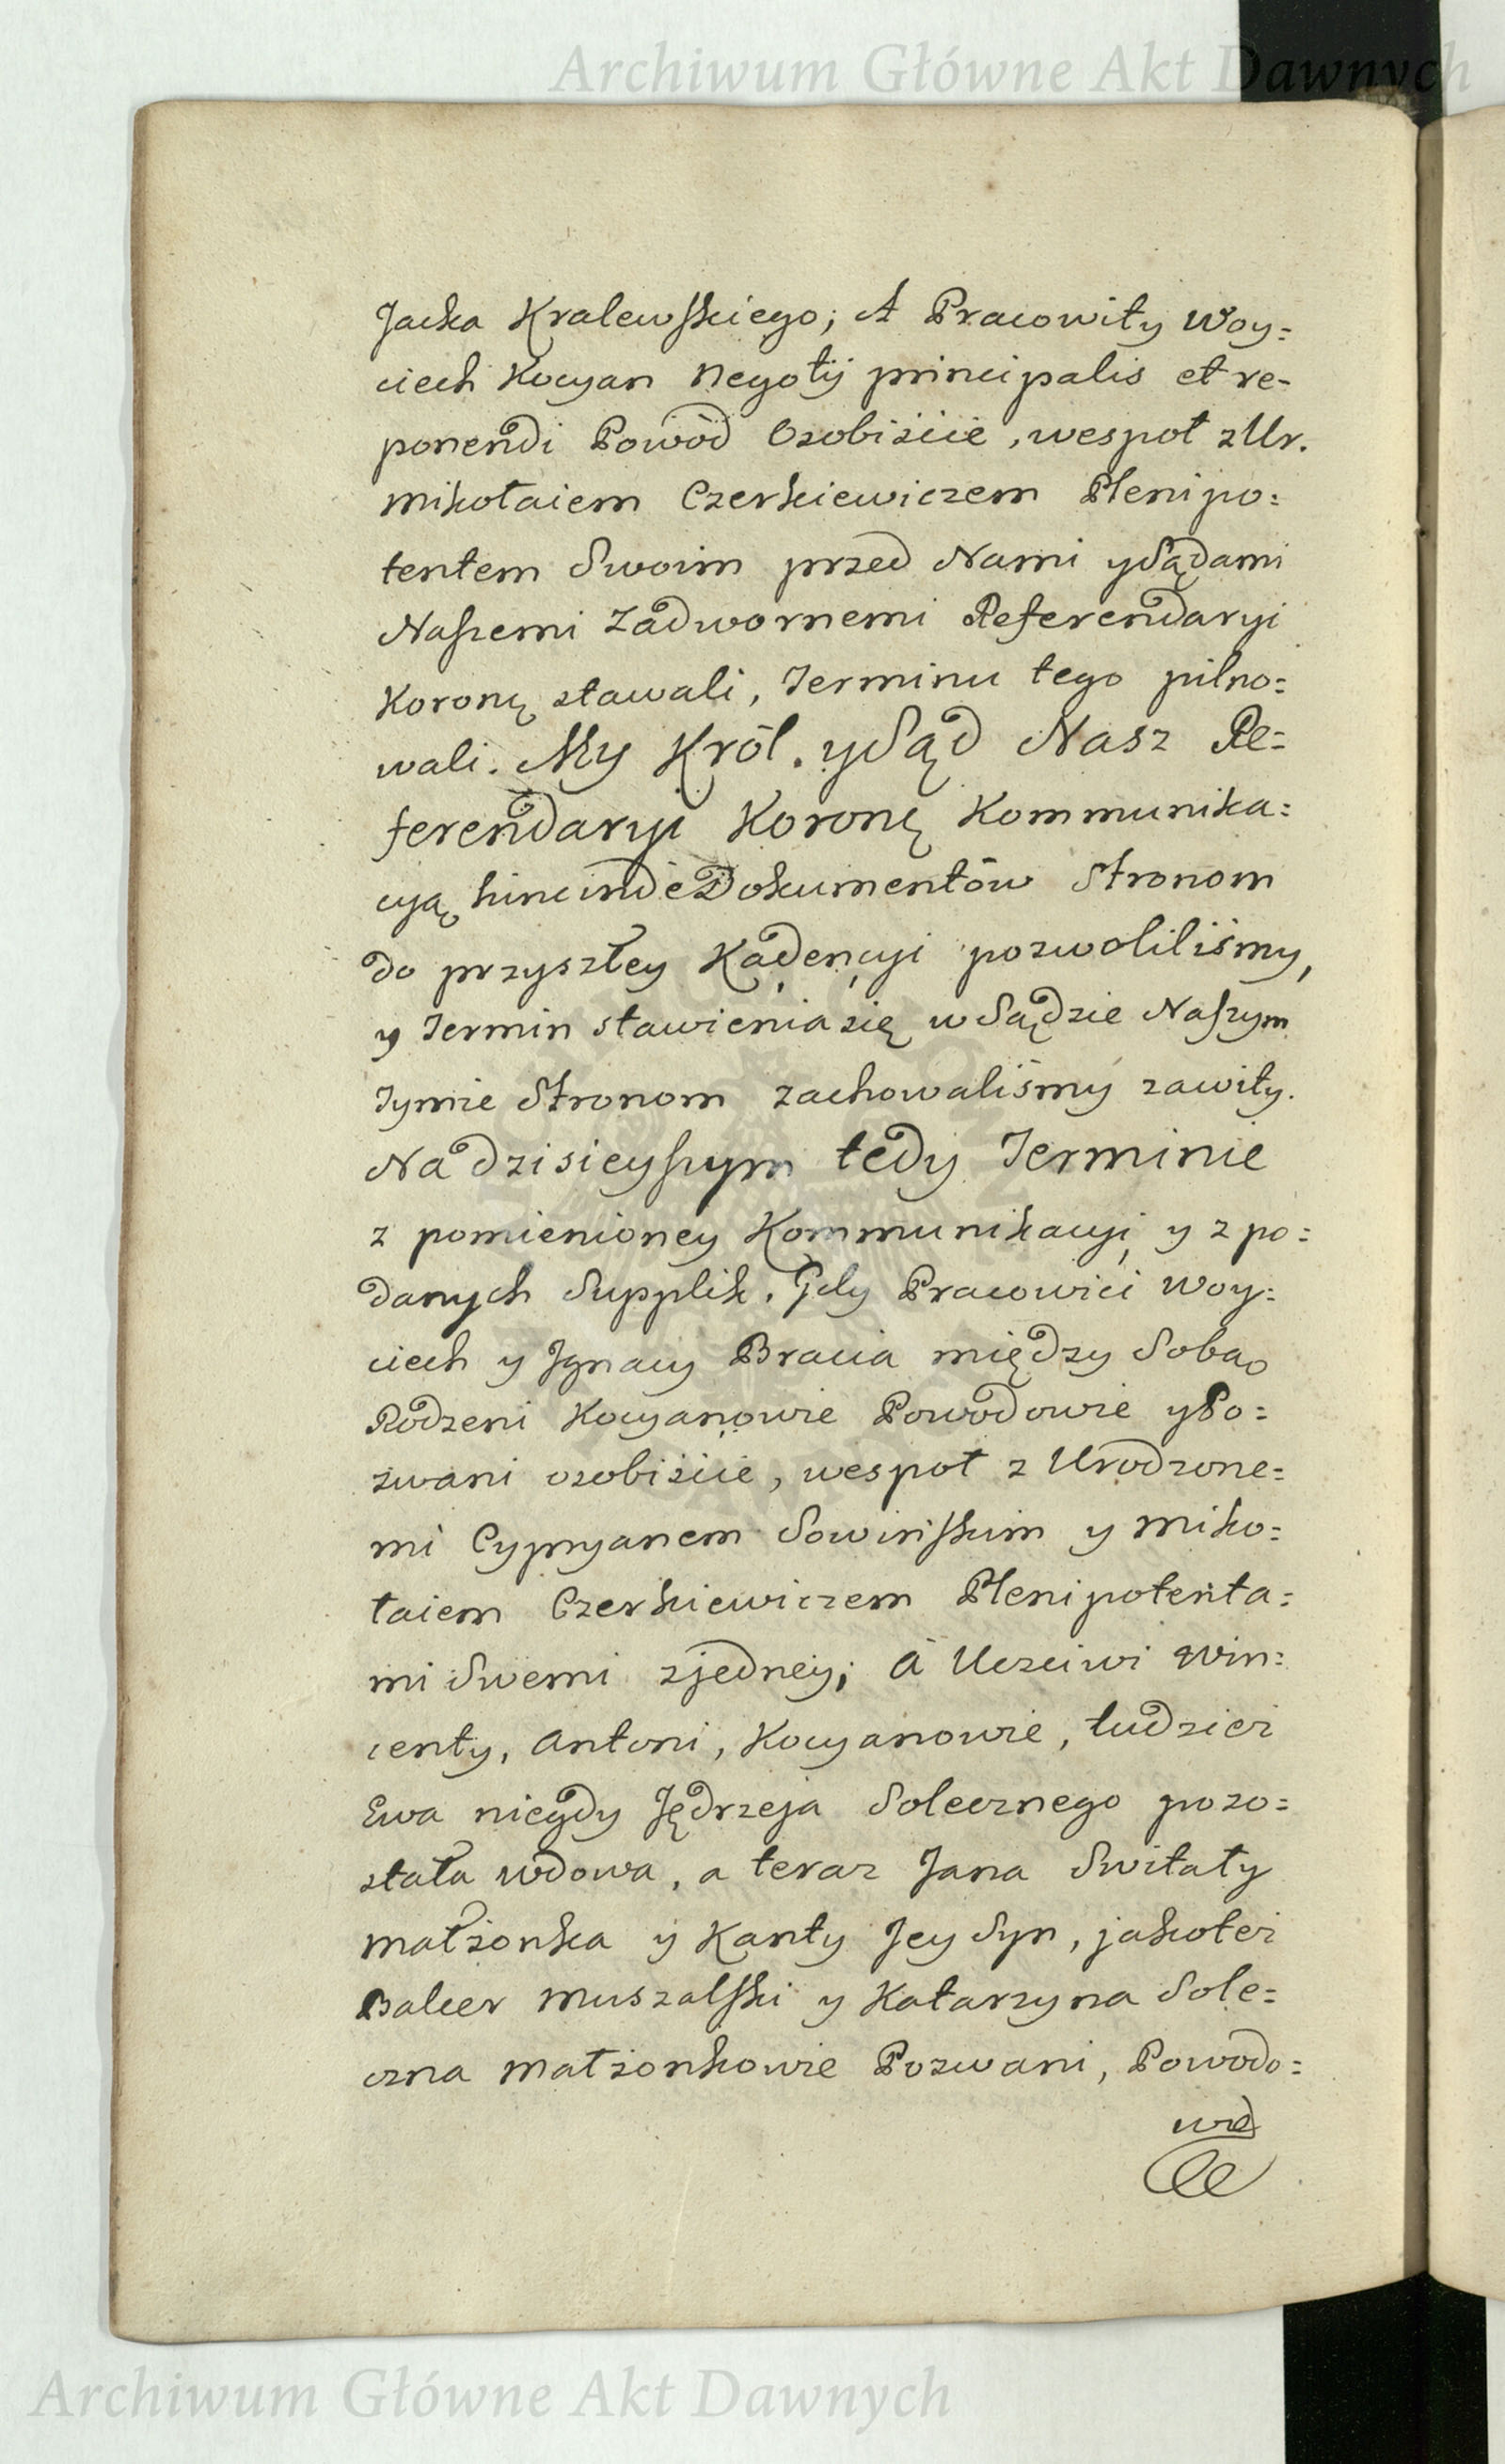 Archiwum Główne Akt Dawnych
Jacka Kralewskiego; A Pracowity Woy=
ciech Kocyan Negotÿ principalis et re-
ponendi Powód Osobiście, wespoł z Ur.
Mikołaiem Czerkiewiczem Plenipo=
tentem Swoim przed Nami y Sądami
Naszemi Zadwornemi Referendaryi
Koronę stawali, Terminu tego pilno=
wali. My Król. y Sąd Nasz Re=
ferendaryi Koronę Kommunika=
cyą hinc inde Dokumentów Stronom
do przyszłey Kadencyi pozwoliliśmy,
y Termin stawienia się w Sądzie Naszym
Tymże Stronom zachowaliśmy zawity.
Na dzisieyszym tedy Terminie
z pomienioney Kommunikacyi y z po=
danych Supplik. Gdy Pracowici Woy=
ciech y Jgnacy Bracia między Sobą
Rodzeni Kocyanowie Powodowie y Po=
zwani osobiście, wespoł z Urodzone=
mi Cypryanem Sowińskim y Miko=
łaiem Czerkiewiczem Plenipotenta=
mi Swemi z jedney; A Uczciwi Win=
centy, Antoni, Kocyanowie, tudzież
Ewa niegdy Jędrzeja Solecznego pozo=
stała wdowa, a teraz Jana Switały
małżonka y Kanty Jey Syn, jakoteż
Balcer Muszalski y Katarzyna Sole=
czna Małżonkowie Pozwani, Powodo=
wie
Archiwum Główne Akt Dawnych